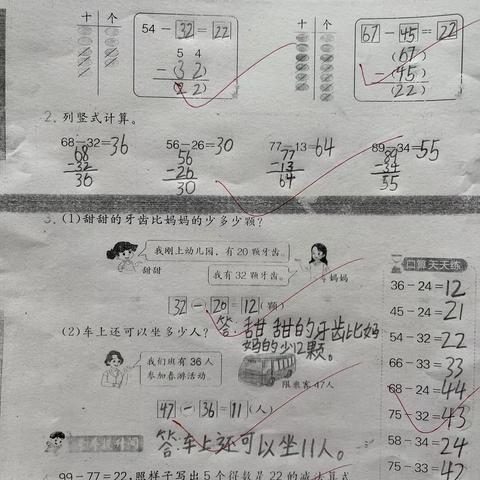 十 个
54 - 32 = 22
5 4
- (3 2)
(2 2)
十 个
67 - 45 = 22
(67)
- (45)
(22)
2. 列竖式计算。
68-32=36 56-26=30 77-13=64 89-34=55
68 56 77 89
-32 -26 -13 -34
36 30 64 55
3. (1)甜甜的牙齿比妈妈的少多少颗?
我刚上幼儿园,有20颗牙齿。
甜甜
我有32颗牙齿。
妈妈
32 - 20 = 12 (颗)
答:甜甜的牙齿比妈
妈的少12颗。
(2)车上还可以坐多少人?
我们班有36人
参加春游活动。
限乘客47人
47 - 36 = 11 (人)
答:车上还可以坐11人。
99-77=22,照样子写出5个得数是22的减法算式
口算天天练
36-24=12
45-24=21
54-32=22
66-33=33
68-24=44
75-32=43
58-34=24
75-33=42